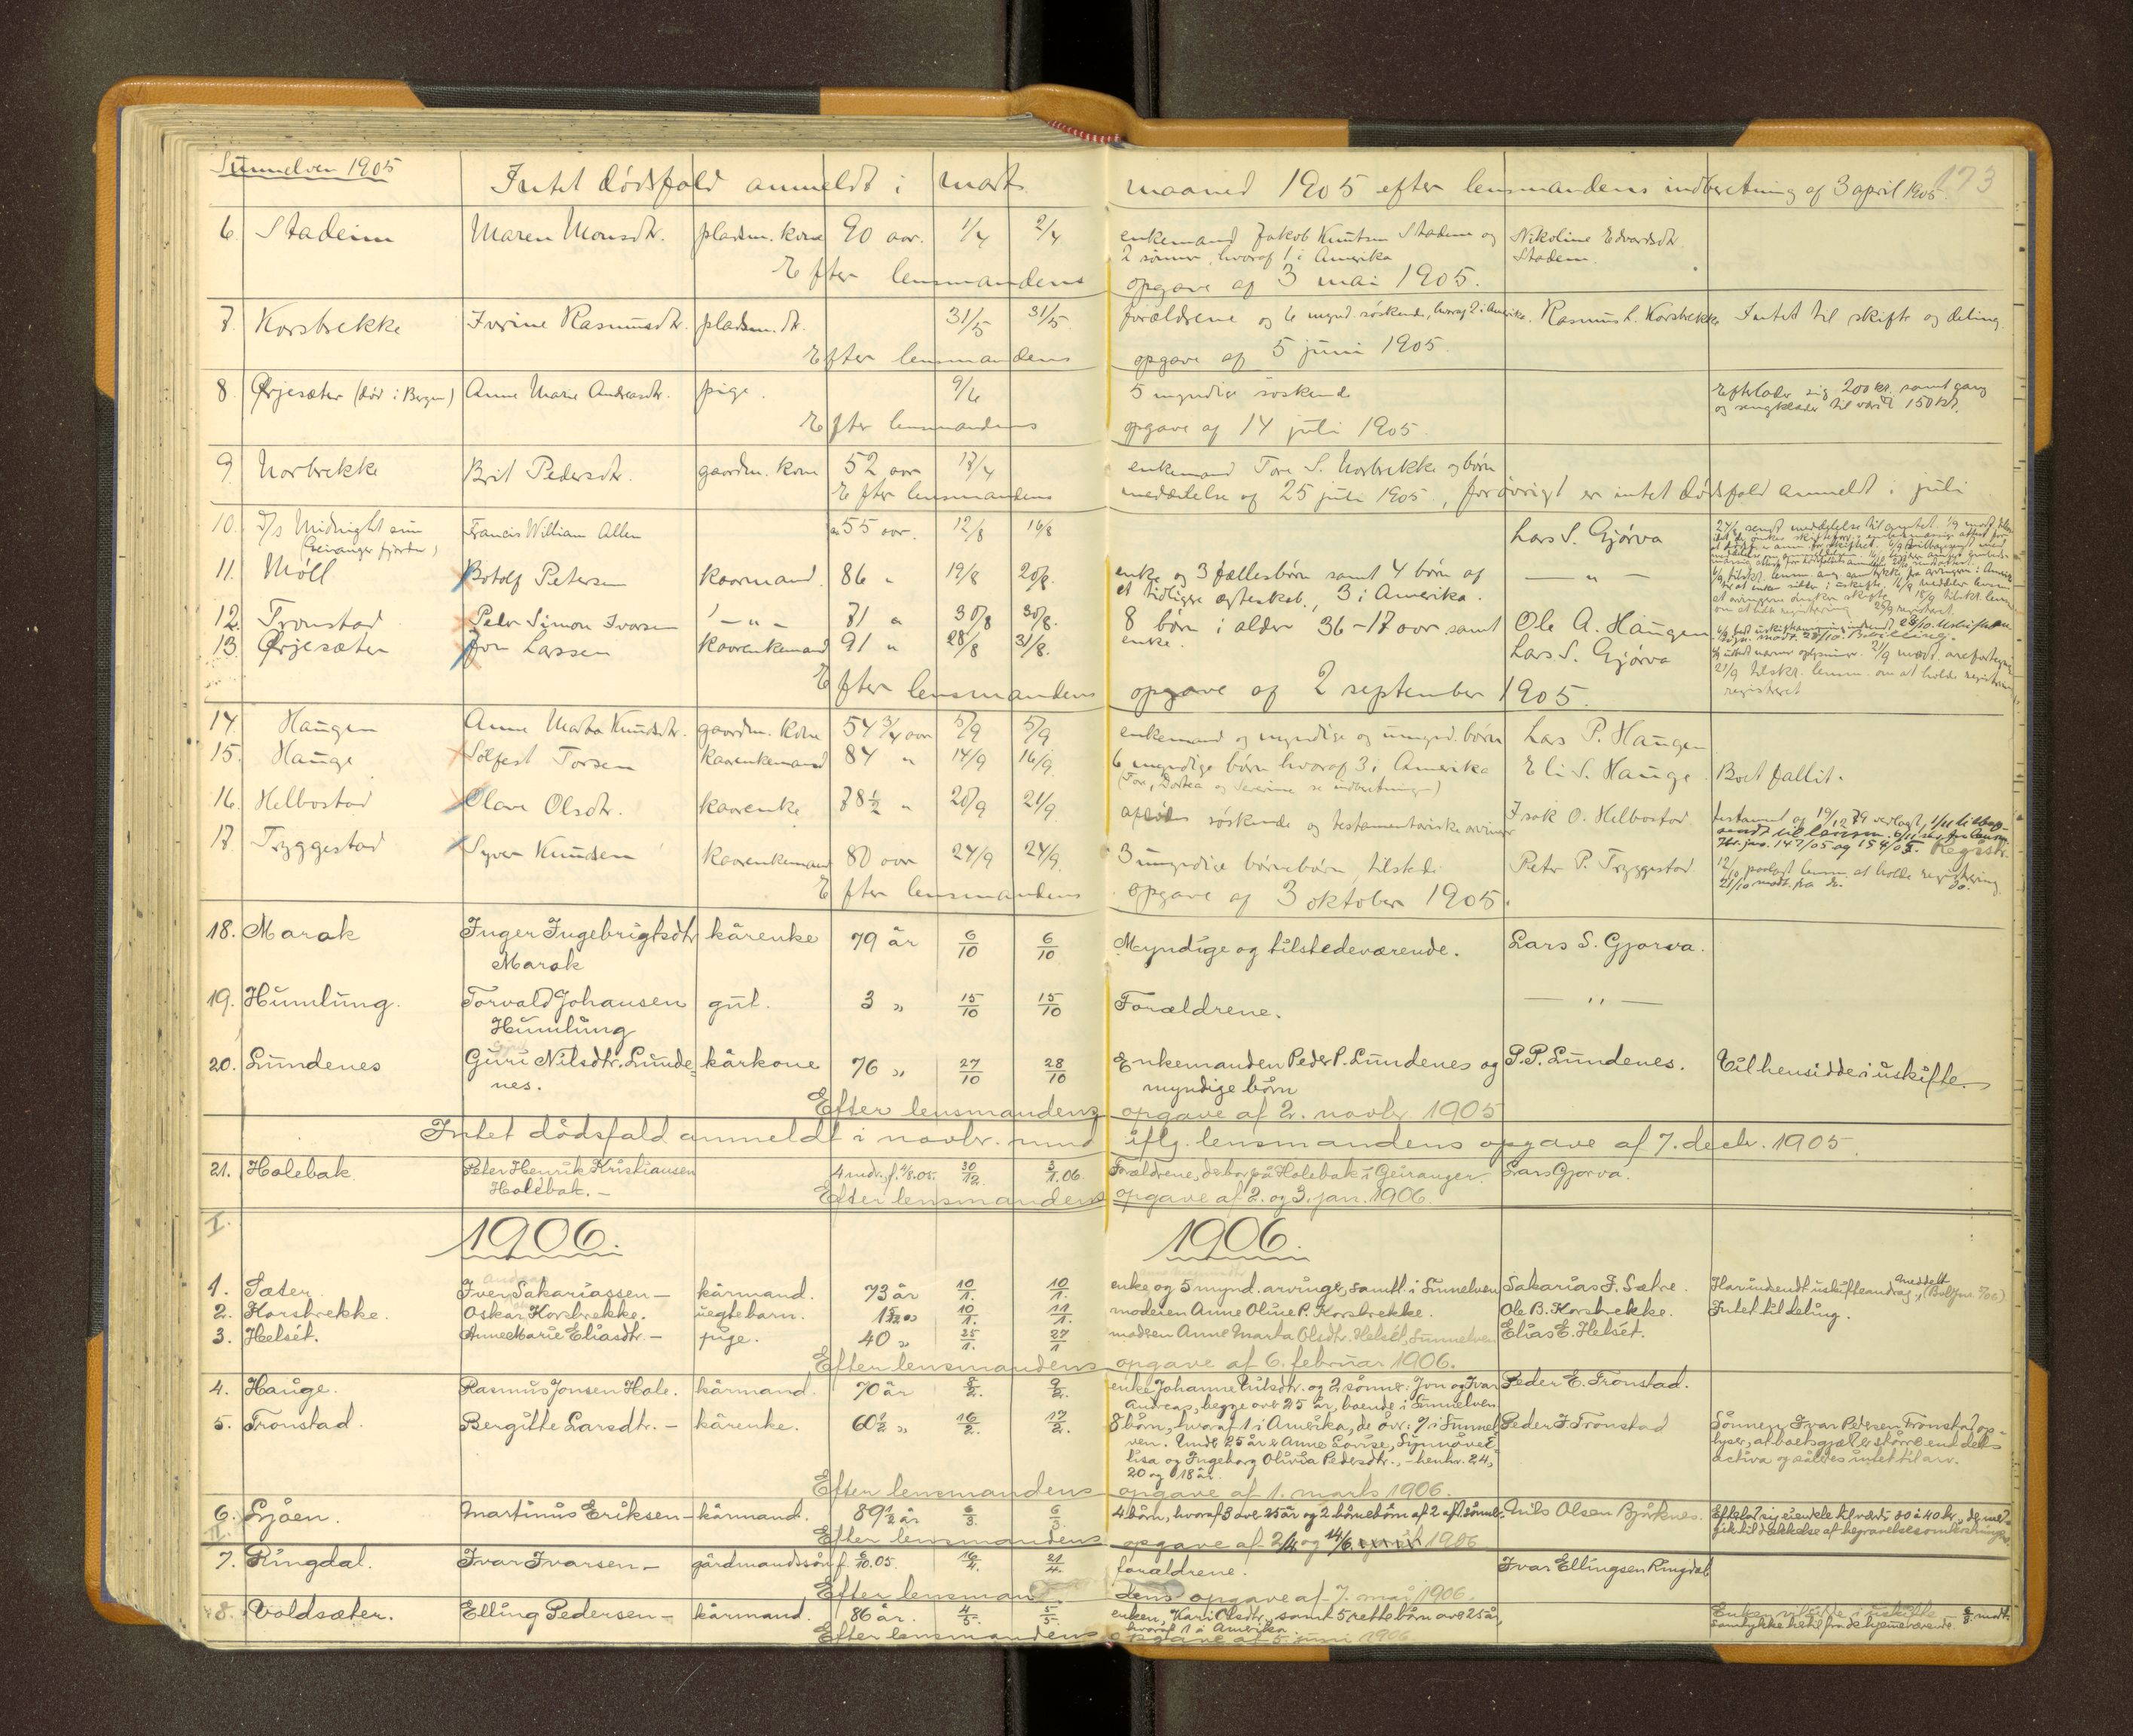 Sunnelven 1905
Intet dødsfald anmeldt i marts maaned 1905 efter lensmandens indberetning af 3 april 1905.
173
6. Stadeim Maren Monsdtr. pladsm. kone 90 aar. 1/4 2/4 enkemand Jakob Knutsen Stadem og Nikoline Edvardsdtr.
2 sønner, hvoraf 1 i Amerika Stadem.
Efter lensmandens opgave af 3 mai 1905.
7. Korsbrekke Iverine Rasmusdtr. pladsm. dtr. 31/5 31/5 forældrene og 6 mynd. søskende, hvoraf 2 i Amerika. Rasmus L. Korsbrekke Intet til skifte og deling.
Efter lensmandens opgave af 5 juni 1905.
8 Ørjesæter (død i Bergen) Anne Marie Andreasdtr. pige. 9/6 5 myndige søskende Efterlader sig 200 kr. samt gang
og sengklæder til værdi 150 kr.
Efter lensmandens opgave af 14 juli 1905.
9. Norbrekke Brit Pedersdtr. gaardm. kone 52 aar 17/4 enkemand Tore S. Norbrekke og børn
Efter lensmandens meddelelse af 25 juli 1905, forøvrigt er intet dødsfald anmeldt i juli
10. D/s Midnight sun Francis William Allen 55 aar. 12/8 16/8 Lars S. Gjørva
(Geiranger fjorden)
11. Möll Botolf Petersen kaarmand. 86 " 19/8 20/8. enke og 3 fællesbørn samt 4 børn af — " —
et tidligere ægteskab, 3 i Amerika.
12. Tronstad Peder Simon Ivarsen — " — 71 " 30/8 30/8. 8 børn i alder 36-17 aar samt Ole A. Haugen
enke.
13. Ørjesæter Jon Larsen kaarenkemand 91 " 28/8 31/8. Lars S. Gjørva
Efter lensmandens opgave af 2 september 1905.
14. Haugen Anne Marta Knudsdtr. gaardm. kone 54 3/4 aar 5/9 5/9 enkemand og myndige og umynd. børn Lars P. Haugen
15. Hauge Sölfest Torsen kaarenkemand 84 " 14/9 16/9 6 myndige børn hvoraf 3 i Amerika Eli S. Hauge Boet fallit.
(Tore, Dortea og Severine se indberetningen)
16. Helbostad Olave Olsdtr. kaarenke 78 1/2 " 20/9 21/9 afdødes søskende og testamentariske arvinger Isak O. Helbostad
17. Tryggestad Syver Knudsen kaarenkemand 80 aar 24/9 24/9 3 umyndige børnebørn, tilstede Peter P. Tryggestad 12/10 paalagt lensm. at holde registrering
21/10 modt. fra do. do.
Efter lensmandens opgave af 3 oktober 1905.
18. Marak Inger Ingebrigtsdtr kårenke 79 år 6/10 6/10 Myndige og tilstedeværende. Lars S. Gjørva.
Marak
19. Humlung. Torvald Johansen gut. 3 " 15/10 15/10 Forældrene. — " —
Humlung
20. Lundenes Guri Nilsdtr. Lunde- kårkone 76 " 27/10 28/10 Enkemanden Peder P. Lundenes og P.P. Lundenes. Vil hensidde i uskifte.
nes. myndige börn
Efter lensmandens opgave af 2. novbr 1905
Intet dödsfald anmeldt i novbr. mnd iflg. lensmandens opgave af 7. decbr. 1905.
21. Holebak Peter Henrik Kristiansen 4 mdr., f. 4/8.05. 30/12. 3/1.06. Forældrene, de bor på Holebak i Geiranger. Lars Gjørva.
Holebak. -
Efter lensmandens opgave af 2. og 3. jan. 1906.
I.
1906. 1906.
1. Sæter. Iver Sakariassen - kårmand. 73 år 10/1. 10/1. enke og 5 mynd. arvinge, samtl. i Sunnelven Sakarias I. Sætre. Har indsendt uskifteandrag.
2. Korsbrekke. Oskar Korsbrekke. uegte barn. 10/1. 11/1. moderen Anne Oline P. Korsbrekke. Ole B. Korsbrekke. Intet til deling.
3. Helset. Anne Marie Eliasdtr. - pige. 40 " 25/1. 27/1 modren Anne Marta Olsdtr. Helset, Sunnelven Elias E. Helset.
Efter lensmandens opgave af 6. februar 1906.
4. Hauge. Rasmus Jonsen Hole. kårmand. 70 år 8/2. 9/2. enke Johanne Nilsdtr. og 2 sønner: Jon og Ivar Peder E. Tronstad.
Andreas, begge over 25 år, boende i Sunnelven.
5. Tronstad. Bergitte Larsdtr. - kårenke. 60 1/2 " 16/2. 17/2. 8 børn, hvoraf 1 i Amerika, de övr. 7 i Sunnel- Peder I. Tronstad Sönnen Ivar Pedersen Tronstad op-
ven. Under 25 år er Anne Lovise, Synnøve E- lyser, at boets gjæld er större end dets
lisa og Ingeborg Olivia Pedersdtr., - henhv. 24, activa og således intet til arv.
20 og 18 år.
Efter lensmandens opgave af 1. marts 1906.
6. Ljøen. Martinus Eriksen - kårmand. 89 1/2 år 6/3. 6/3. 4 børn, hvoraf 3 over 25 år og 2 børnebørn af 2 afd. sönner. Nils Olsen Bjørknes. Efterlod sig eiendele til værdi 30 à 40 kr., de med-
gik til dækkelse af begravelsesomkostninger.
II.
Efter lensmandens opgave af 2/4 og 14/6 1906
7. Ringdal. Ivar Ivarsen - gårdmandssön f. 6/10.05. 16/4. 21/4. forældrene. Ivar Ellingsen Ringdal
Efter lensmandens opgave af 7. mai 1906.
8. Voldsæter. Elling Pedersen - kårmand. 86 år. 4/5. 5/5. enken, Kari Olsdtr., samt 5 rette börn over 25 år,
hvoraf 1 i Amerika
samtykke hertil fra de hjemmeværende.
Efter lensmandens opgave af 5. juni 1906